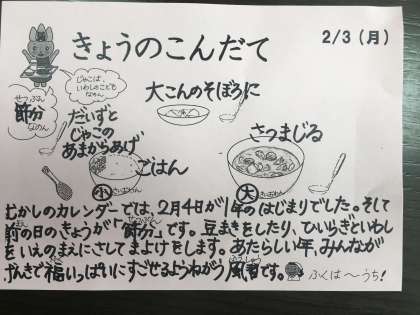 きょうのこんだて
2/3（月）
じゃこは、
いわしのこども
なのん
せつぶん
節分
なのん
だいずと
じゃこの
あまからあげ
大こんのそぼろに
ごはん
さつまじる
小
大
むかしのカレンダーでは、2月4日が1年のはじまりでした。そして
前の日のきょうが「節分」です。豆まきをしたり、ひいらぎといわし
をいえのまえにさしてまよけをします。あたらしい年、みんなが
げんきで福いっぱいにすごせるようねがう風習です。
ふくは〜うち！